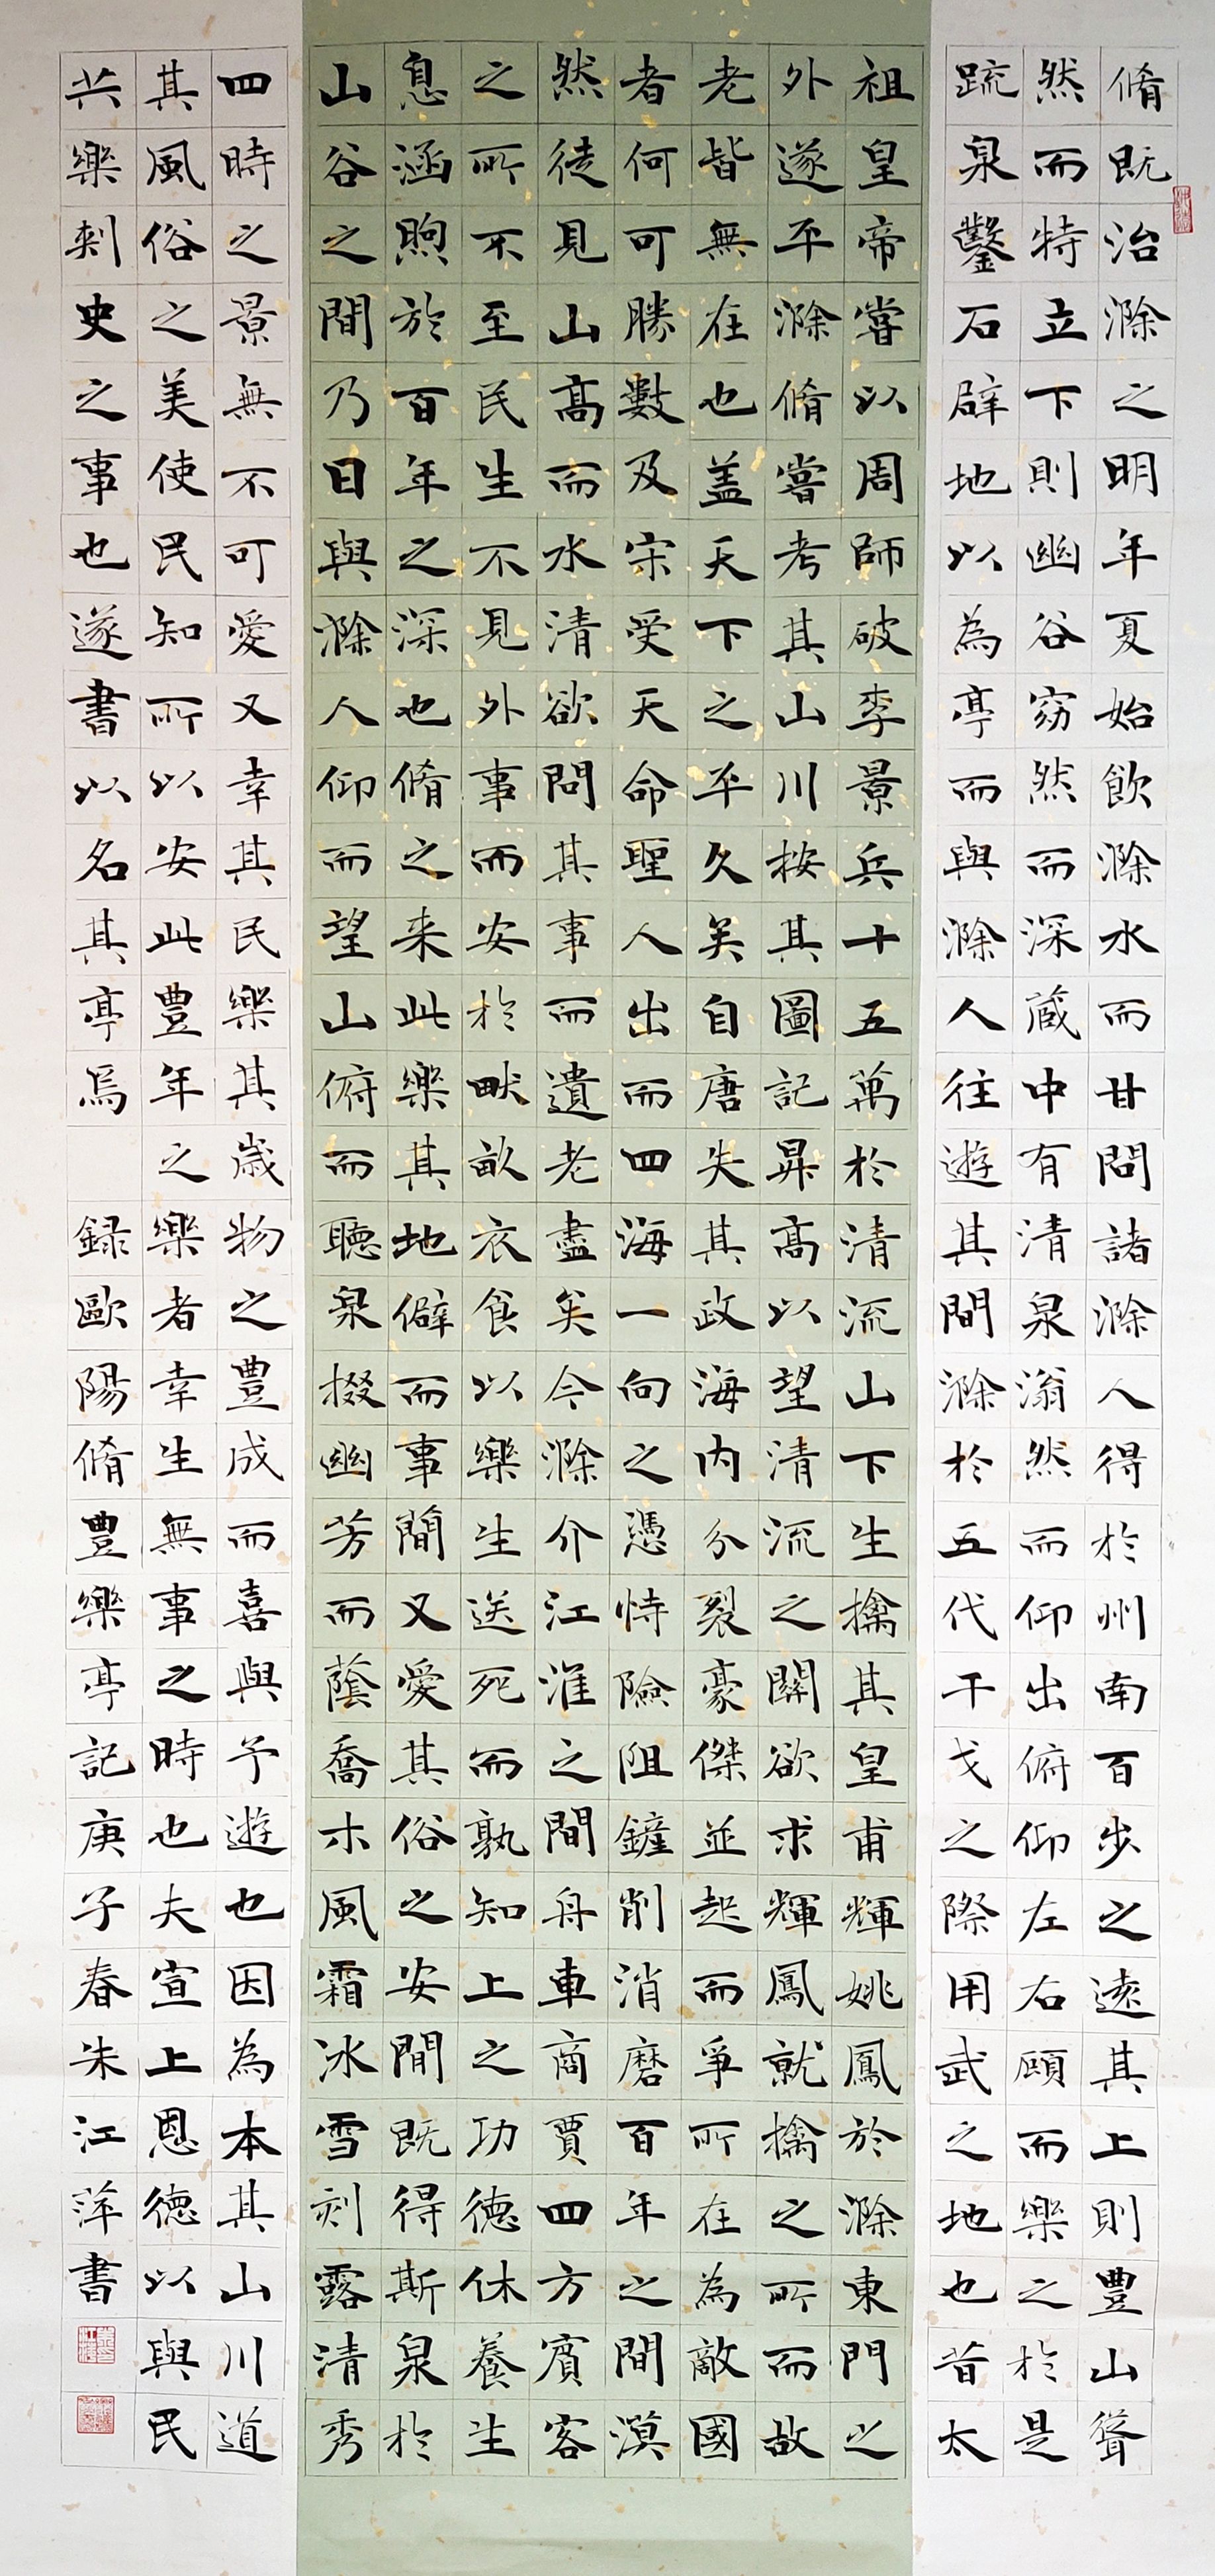 脩既治滁之明年夏始飲滁水而甘問諸滁人得於州南百步之遠其上則豊山聳
然而特立下則幽谷窈然而深蔵中有清泉滃然而仰出俯仰左右顧而樂之於是
疏泉鑿石辟地以為亭而與滁人往遊其間滁於五代干戈之際用武之地也昔太
祖皇帝嘗以周師破李景兵十五萬於清流山下生擒其皇甫輝姚鳳於滁東門之
外遂平滁脩嘗考其山川按其圖記昇高以望清流之關欲求輝鳳就擒之所而故
老皆無在也盖天下之平久矣自唐失其政海内分裂豪傑並起而爭所在為敵國
者何可勝數及宋受天命聖人出而四海一向之憑恃險阻鏟削消磨百年之間漠
然徒見山高而水清欲問其事而遺老盡矣今滁介江淮之間舟車商賈四方賓客
之所不至民生不見外事而安於畎畝衣食以樂生送死而孰知上之功德休養生
息涵煦於百年之深也脩之来此樂其地僻而事簡又愛其俗之安閒既得斯泉於
山谷之間乃日與滁人仰而望山俯而聽泉掇幽芳而蔭喬木風霜冰雪刻露清秀
四時之景無不可愛又幸其民樂其歲物之豊成而喜與予遊也因為本其山川道
其風俗之美使民知所以安此豊年之樂者幸生無事之時也夫宣上恩德以與民
共樂刺史之事也遂書以名其亭焉 録歐陽脩豊樂亭記庚子春朱江萍書